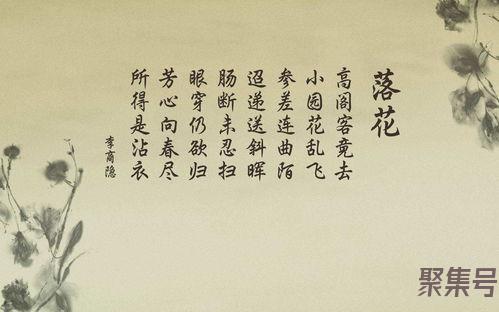 落花
高阁客竟去
小园花乱飞
参差连曲陌
迢递送斜晖
肠断未忍扫
眼穿仍欲归
芳心向春尽
所得是沾衣
李商隐
聚集号